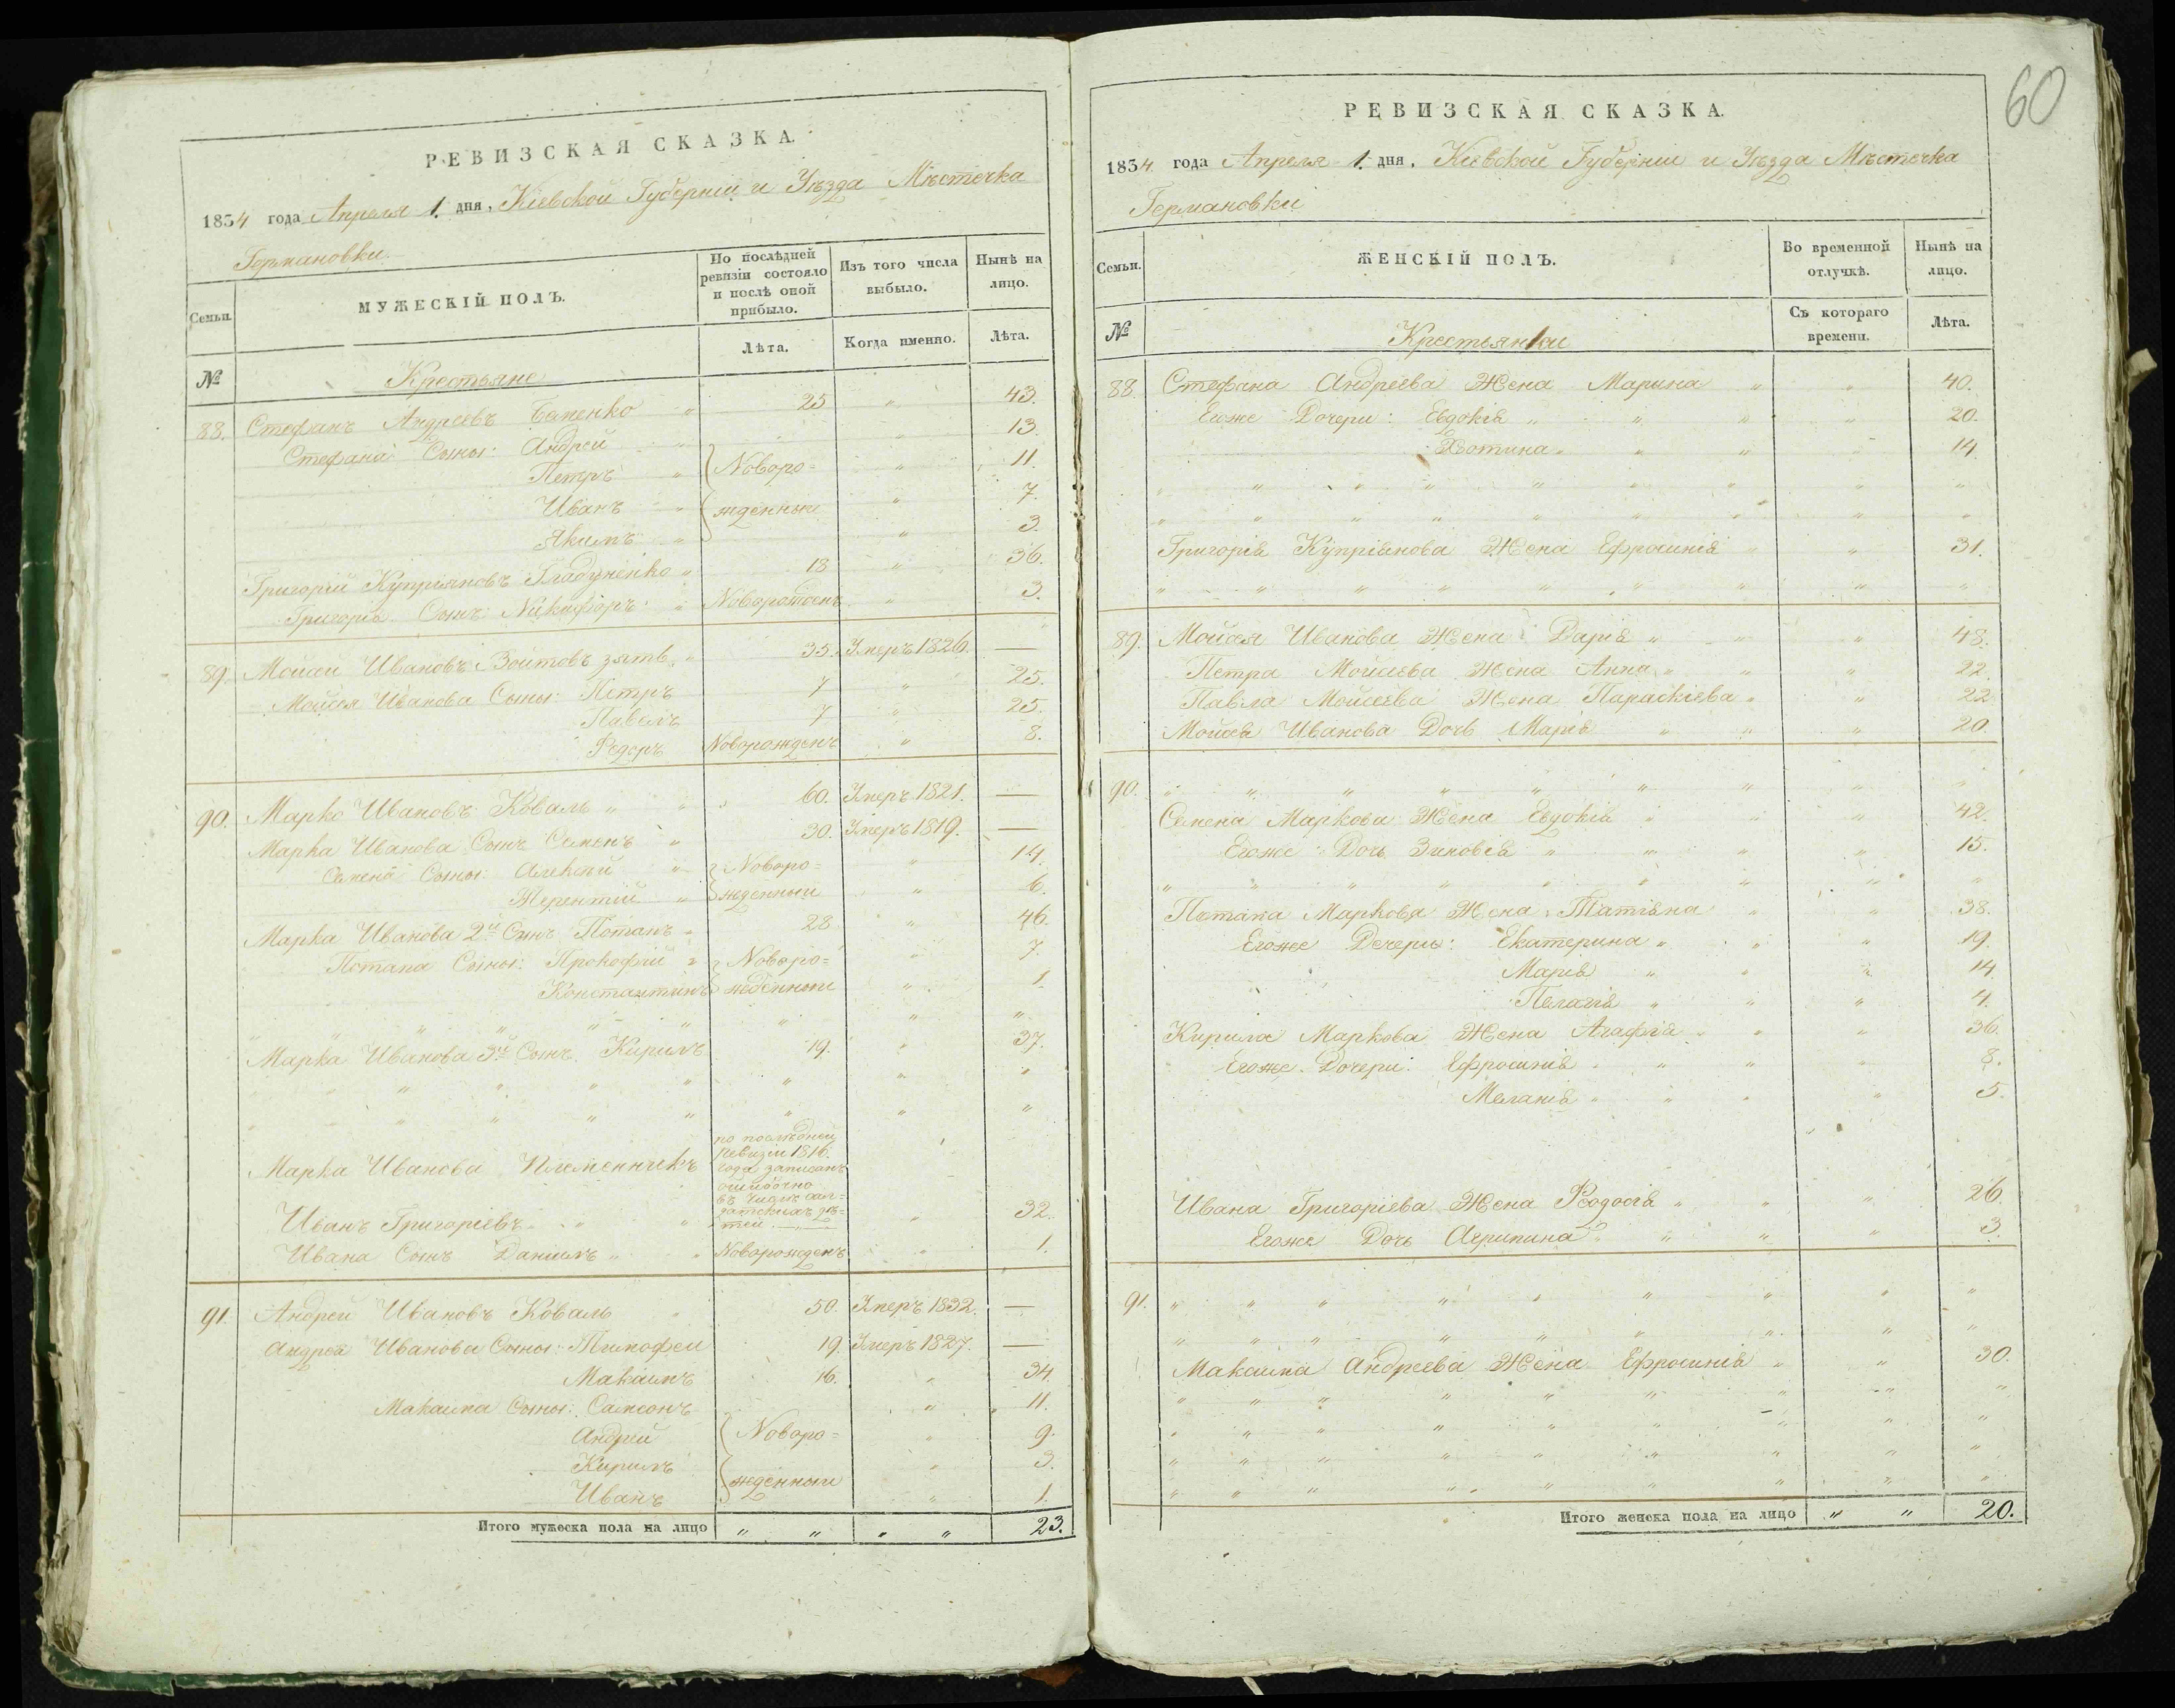 РЕВИЗСКАЯ СКАЗКА.
1834 года Апреля 1. дня, Кіевской Губерніи и Уѣзда Мѣстечка
Германовки
Семьи.
МУЖЕСКІЙ ПОЛЪ.
По послѣдней ревизіи состояло и послѣ оной прибыло.
Изъ того числа выбыло.
Нынѣ на лицо.
№
Лѣта.
Когда именно.
Лѣта.
Крестьяне
88. Стефанъ Андреевъ 25 " 43.
Стефана Сыны: Андрей " " 13.
Петръ " Новоро= " 11.
Иванъ " жденныи " 7.
Якимъ " " 3.
Григорій Купріяновъ Гладуненко " 18 " 36.
Григорія Сынъ: Никифоръ " Новорожденъ " 3.
89. Мойсей Ивановъ Войтовъ зять " 35. Умеръ 1826. —
Мойсея Иванова Сыны: Петръ 7 " 25.
Павелъ 7 " 25.
Ѳедоръ Новорожденъ " 8.
90. Марко Ивановъ Коваль " " 60. Умеръ 1821. —
Марка Иванова Сынъ Семенъ " 30. Умеръ 1819. —
Семена Сыны: Алексѣй " Новоро= " 14.
Терентій " жденныи " 6.
Марка Иванова 2й Сынъ Потапъ " 28 " 46.
Потапа Сыны: Прокофій " Новоро= " 7.
Константинъ жденныи " 1.
" " " " " " " " "
Марка Иванова 3й Сынъ Кирилъ 19. " 37.
" " " " " " "
" " " " " " "
Марка Иванова Племенникъ
по послѣдней
ревизіи 1816.
года записанъ
ошибочно
въ числѣ сол=
датскихъ дѣ=
тей
Иванъ Григоріевъ " " " 32.
Ивана Сынъ Данилъ " " Новорожденъ " 1.
91. Андрей Ивановъ Коваль " 50. Умеръ 1832. —
Андрея Иванова Сыны: Тимофей 19. Умеръ 1827. —
Максимъ 16. " 34.
Максима Сыны: Самсонъ " 11.
Андрей Новоро= " 9.
Кирилъ " 3.
Иванъ жденныи " 1.
Итого мужеска пола на лицо " " " " 23.
60
РЕВИЗСКАЯ СКАЗКА.
1834 года Апреля 1. дня, Кіевской Губерніи и Уѣзда Мѣстечка
Германовки
Семьи.
ЖЕНСКІЙ ПОЛЪ.
Во временной отлучкѣ.
Нынѣ на лицо.
№
Съ котораго времени.
Лѣта.
Крестьянки
88. Стефана Андреева Жена Марина " " 40.
Егоже Дочери: Евдокія " " " " 20.
Хотина " " " " 14.
" " " " " " " " "
" " " " " " " " "
Григорія Купріянова Жена Ефросинія " " 31.
" " " " " " " " "
89. Мойсея Иванова Жена Дарія " " " 48.
Петра Мойсеева Жена Анна " " " 22.
Павла Мойсеева Жена Параскіева " " 22.
Мойсея Иванова Дочь Марія " " " 20.
90. " " " " " " " " "
Семена Маркова Жена Евдокія " " " 42.
Егоже Дочь Зиновія " " " " 15.
" " " " " " " " "
Потапа Маркова Жена Татіяна " " 38.
Егоже Дочери: Екатерина " " " 19.
Марія " " " 14.
Пелагія " " " 4.
Кирила Маркова Жена Агафія " " " 36.
Егоже Дочери: Ефросинія " " " " 8.
Меланія " " " " 5.
Ивана Григоріева Жена Ѳеодосія " " " 26.
Егоже Дочь Агрипина " " " " 3.
91. " " " " " " " " "
" " " " " " " " "
Максима Андреева Жена Ефросинія " " 30.
" " " " " " " " "
" " " " " " " " "
" " " " " " " " "
" " " " " " " " "
Итого женска пола на лицо " " 20.